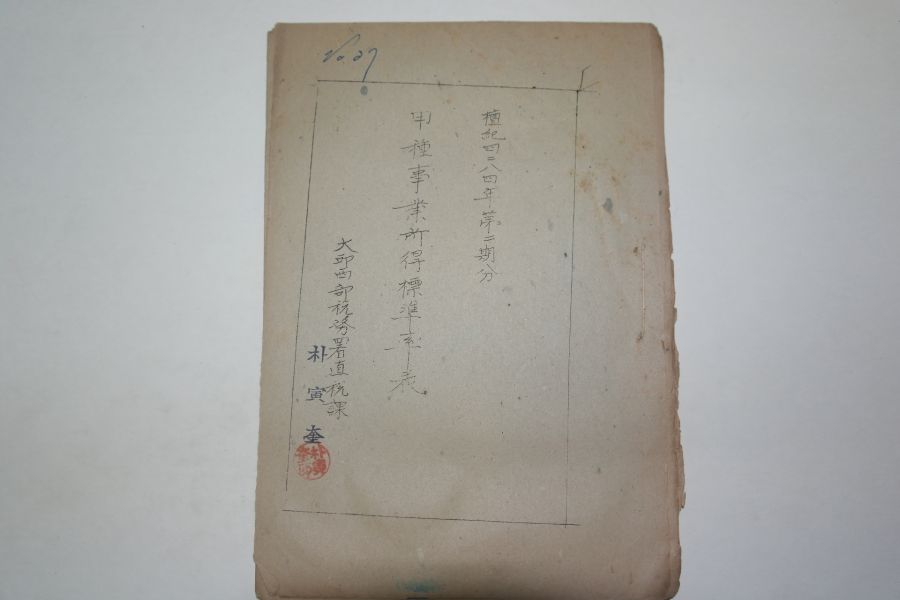 No. 27
檀紀四二八四年第二期分
甲種事業所得標準率表
大邱西部稅務署直稅課
朴寅奎